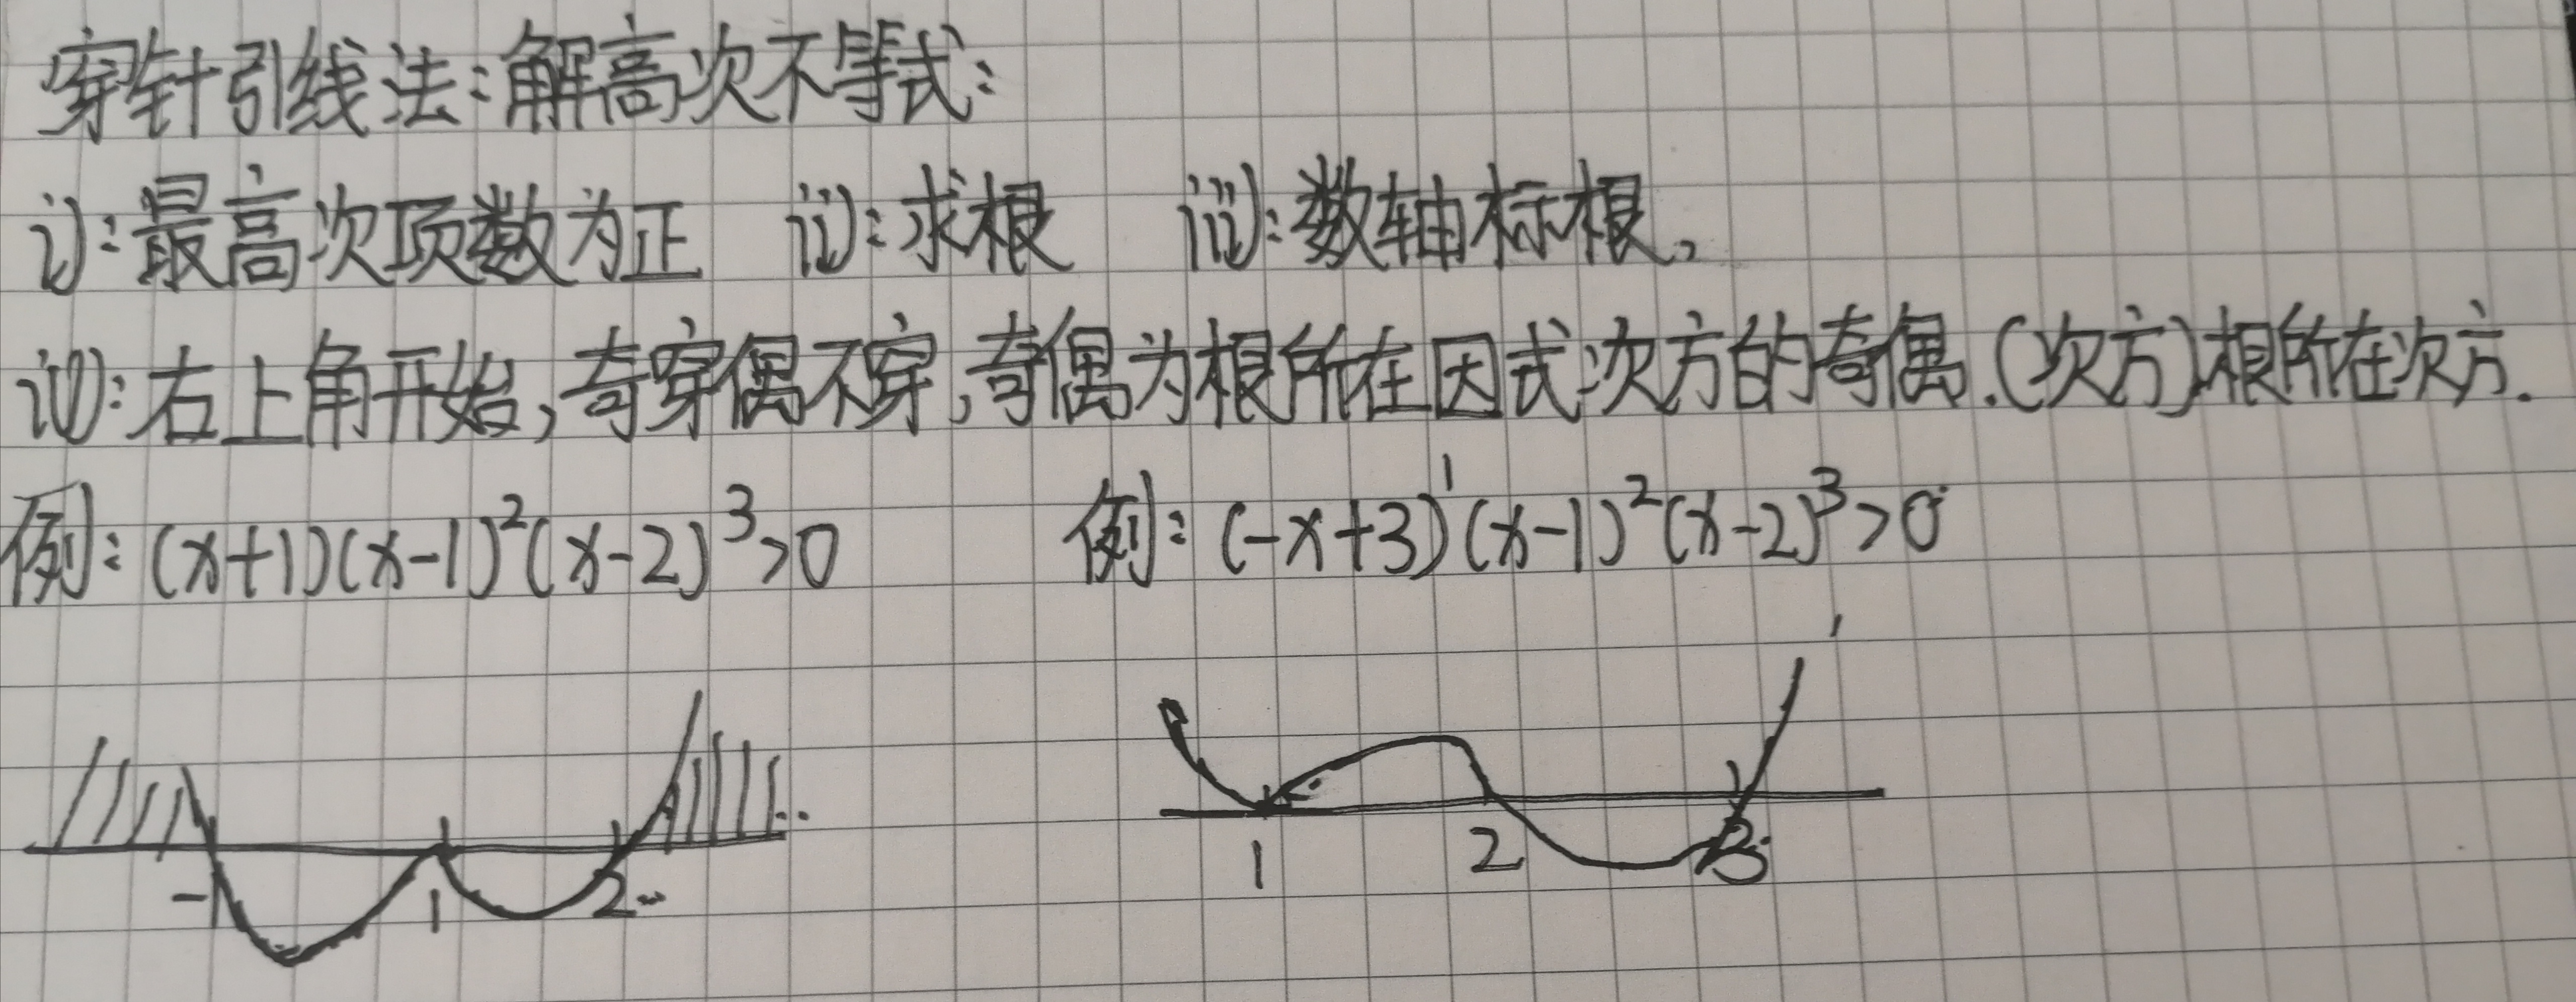 穿针引线法:解高次不等式:
i):最高次项数为正 ii):求根 iii):数轴标根。
iV):右上角开始,奇穿偶不穿,奇偶为根所在因式次方的奇偶.(次方)根所在次方.
例:(x+1)(x-1)²(x-2)³>0 例:(-x+3)¹(x-1)²(x-2)³>0
-1 1 2 1 2 3